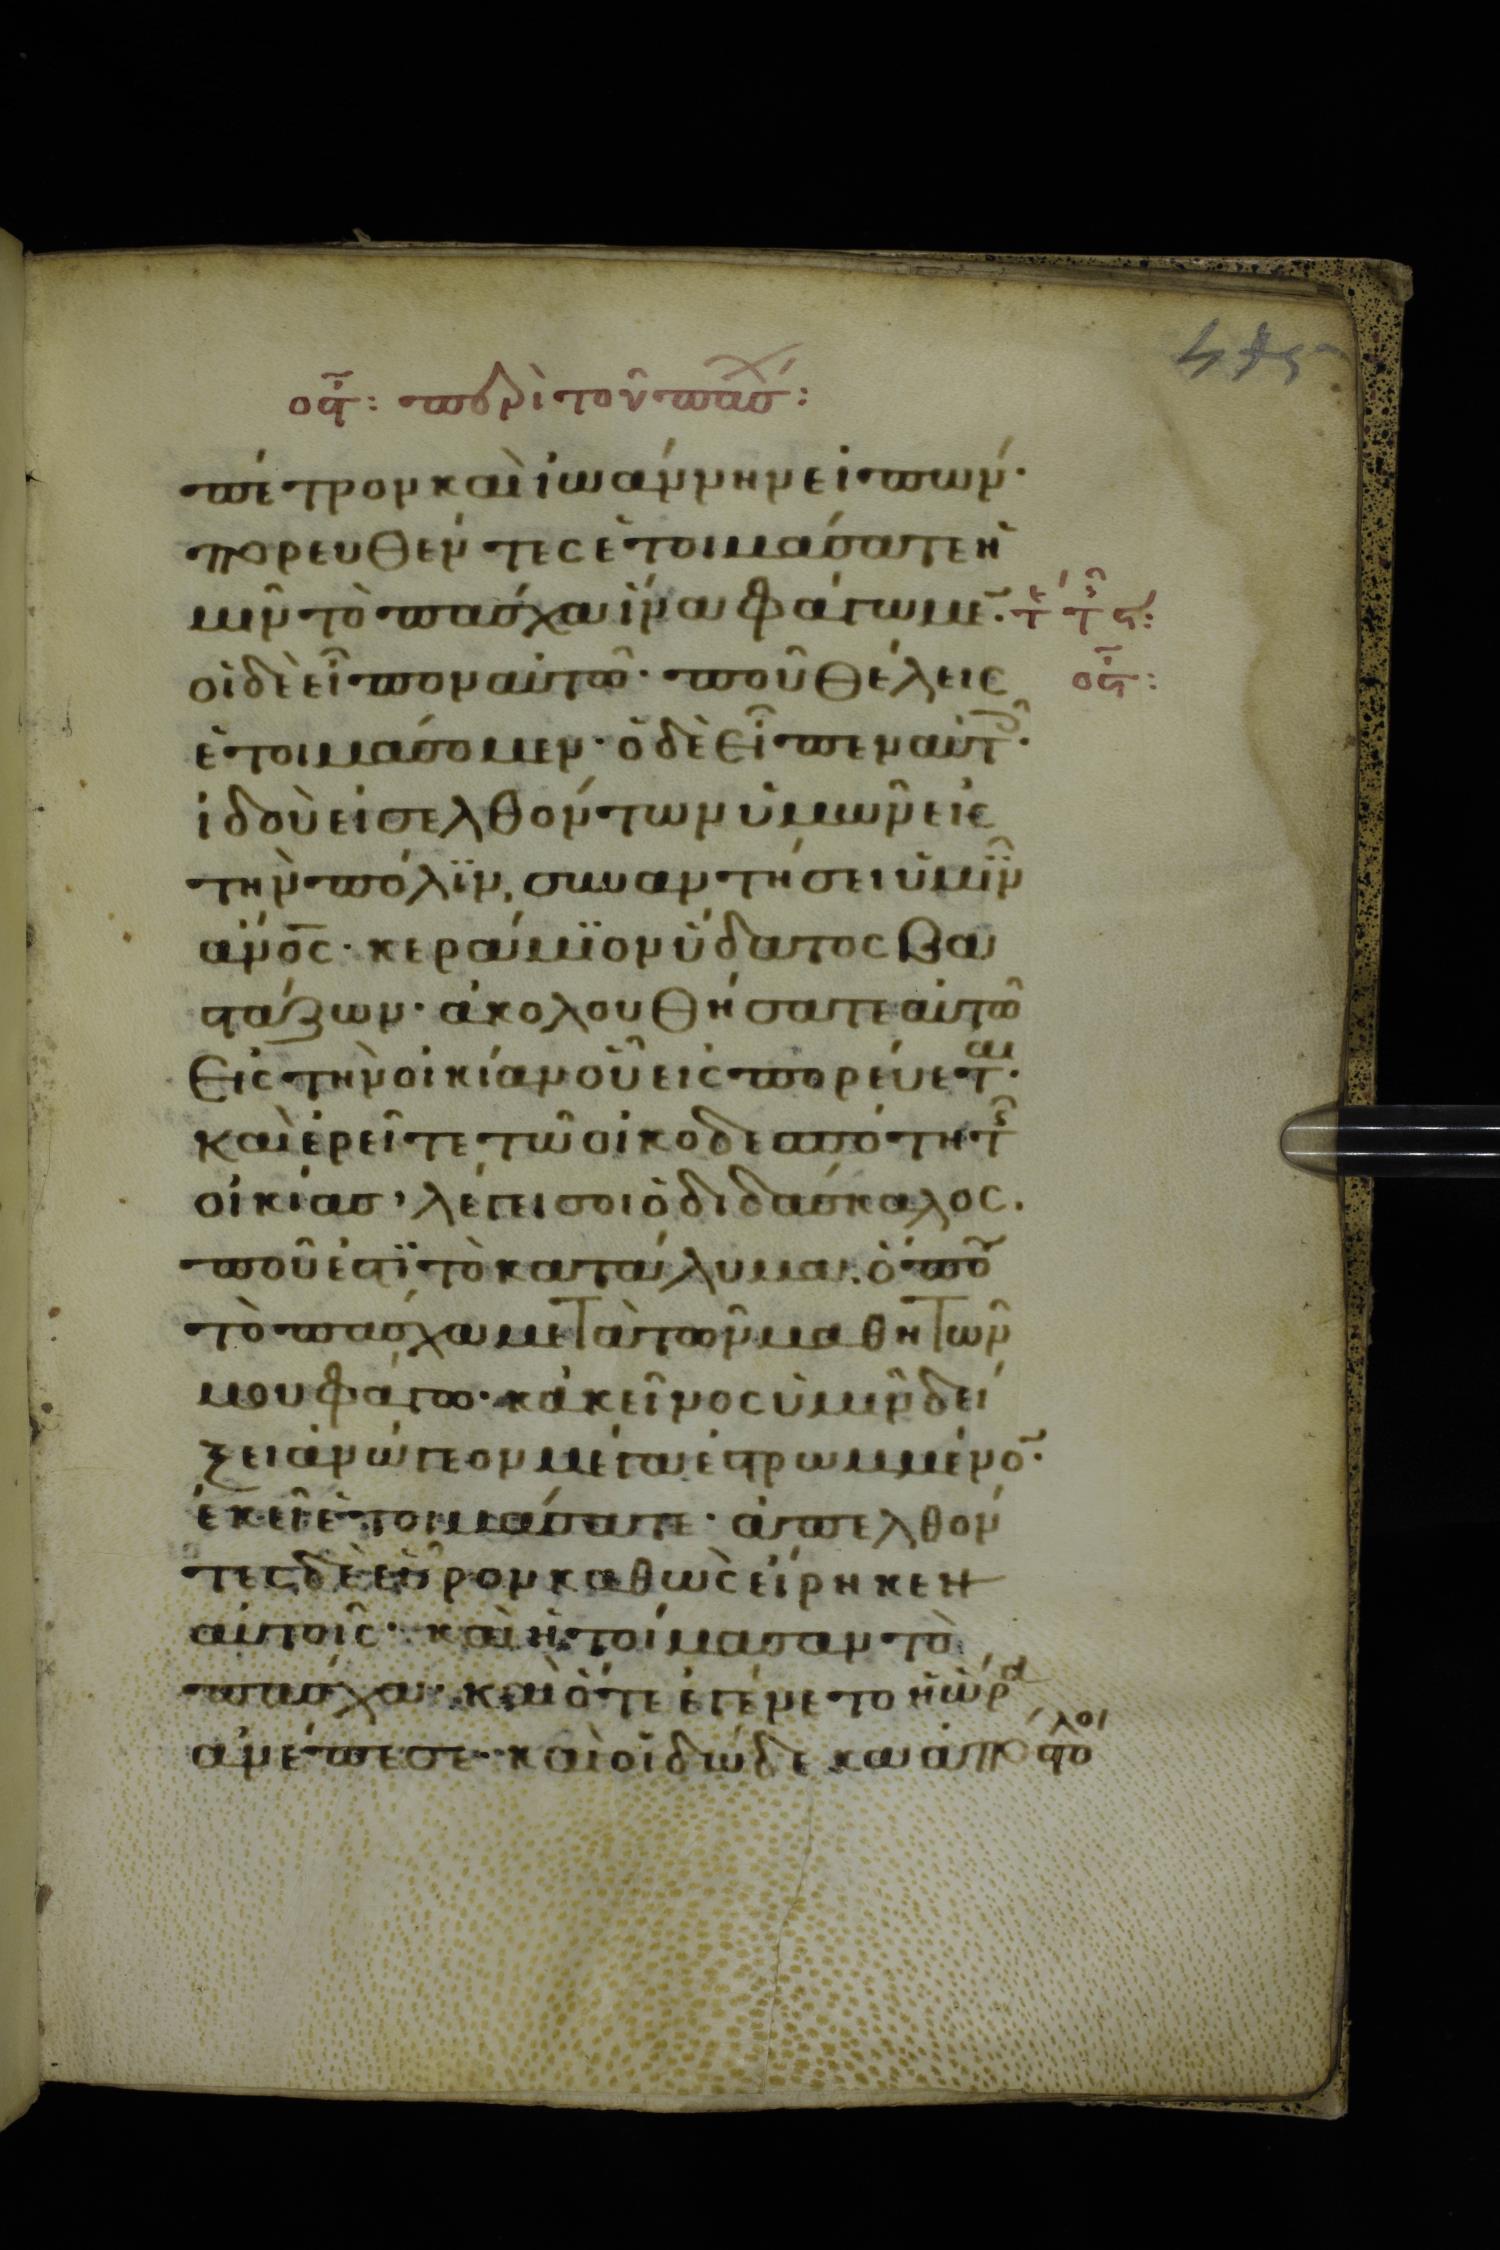 οϛ: περὶ τοῦ πάσχ:
πέτρον καὶ ἰωάννην εἰπών·
πορευθέντες ἑτοιμάσατε ἡ
μῖν τὸ πάσχα ἵνα φάγωμε̅·
οἱ δὲ εἶπον αὐτῶ· ποῦ θέλεις
ἑτοιμάσομεν· ὁ δὲ εἶπεν αὐτοῖς·
οϛ:
ἰδοὺ εἰσελθόντων ὑμῶν εἰς
τὴν πόλϊν, συναντήσει ὑμῖν
ἄνος· κεράμϊον ὕδατος βα
στάζων· ἀκολουθήσατε αὐτῶ
εἰς τὴν οἰκίαν οὗ εἰσπορεύεται·
καὶ ἐρεῖτε τῶ οἰκοδεσπότη τῆς
οἰκίασ, λέγει σοι ὁ διδάσκαλος.
ποῦ ἐστϊ τὸ κατάλυμα. ὅπου
τὸ πάσχα μετὰ τῶν μαθητῶν
μου φάγω· κἀκεῖνος ὑμῖν δεί
ξει ἀνώγεον μέγα ἐστρωμμένο̅·
ἐκεῖ ἑτοιμάσατε· ἀπελθόν
τες δὲ εὗρον καθὼς εἴρηκεν
αὐτοῖς· καὶ ἡτοίμασαν τὸ
πάσχα· καὶ ὅτε ἐγένετο ἡ ὥρα
ἀνέπεσε· καὶ οἱ δώδεκα ἀπόστολοι